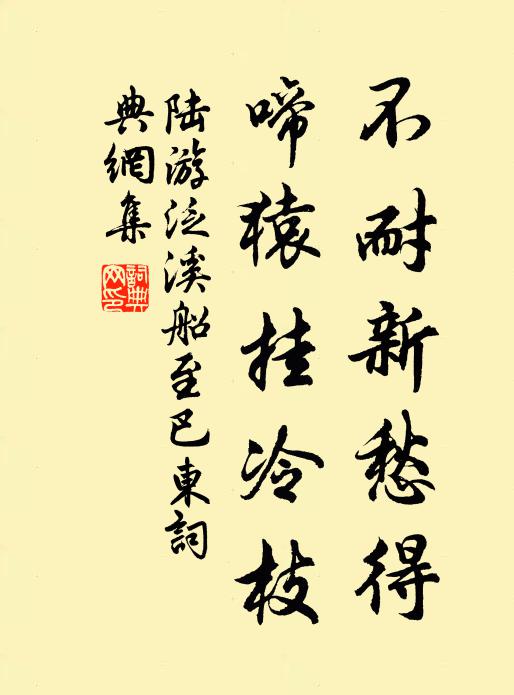 不耐新愁得
啼猿挂冷枝
陆游泛溪船至巴東詞
典網集
詞典
网印